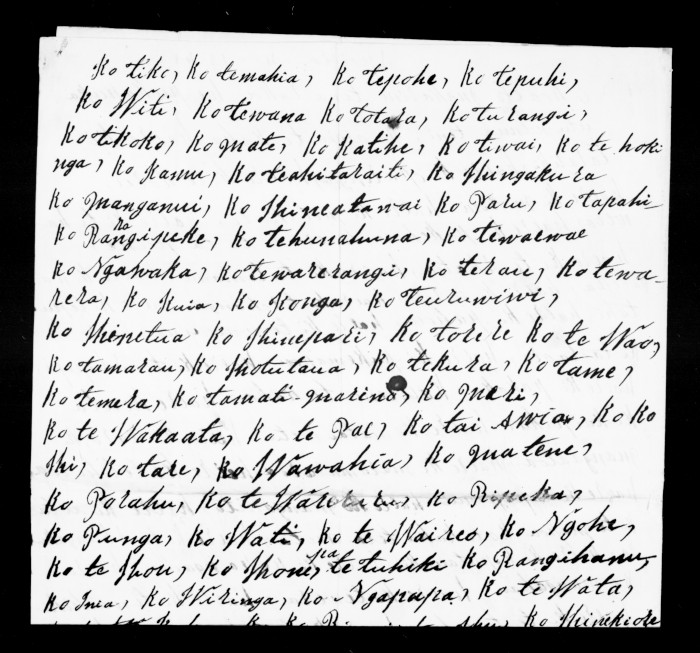 Ko tiko, Ko temahia, Ko tepohe, Ko tepuhi,
Ko Witi, Kotewana Ko totara, Ko turangi,
Ko tikoko, Ko Mate, Ko Katihe, Ko tiwai, Ko te hoki
nga, Ko Kamu, Ko teahitaraiti, Ko Hingakura
Ko Manganui, Ko Hineatawai Ko Paru, Ko tapahi-
ra
Ko Rangipeke, Ko tehunahuna, Ko tiwaewae
Ko Ngawaka, Ko tewarerangi, Ko terau, Ko tewa-
rera, Ko Kuia, Ko Konga, Ko teuruwiwi,
Ko Hinetua Ko Hinepari, Ko torere Ko te Wao,
Ko tamarau, Ko Hotutaua, Ko tekura, Ko tame,
Ko temera, Ko tamati-marino, Ko Meri,
Ko te Wakaata, Ko te Pae, Ko tai Ko Ko
Hi, Ko tare, Ko Wawahia, Ko Matene,
Ko Porahu, Ko te Ko Ripeka,
Ko Punga, Ko Wati, Ko te Waireo, Ko Ngohe,
Ko te Hou, Ko Hone, te tuhiki Ko Rangihanu,
Ko Inia, Ko Wiringa, Ko Ngapapa, Ko te Wata,
Ko Hinekiore